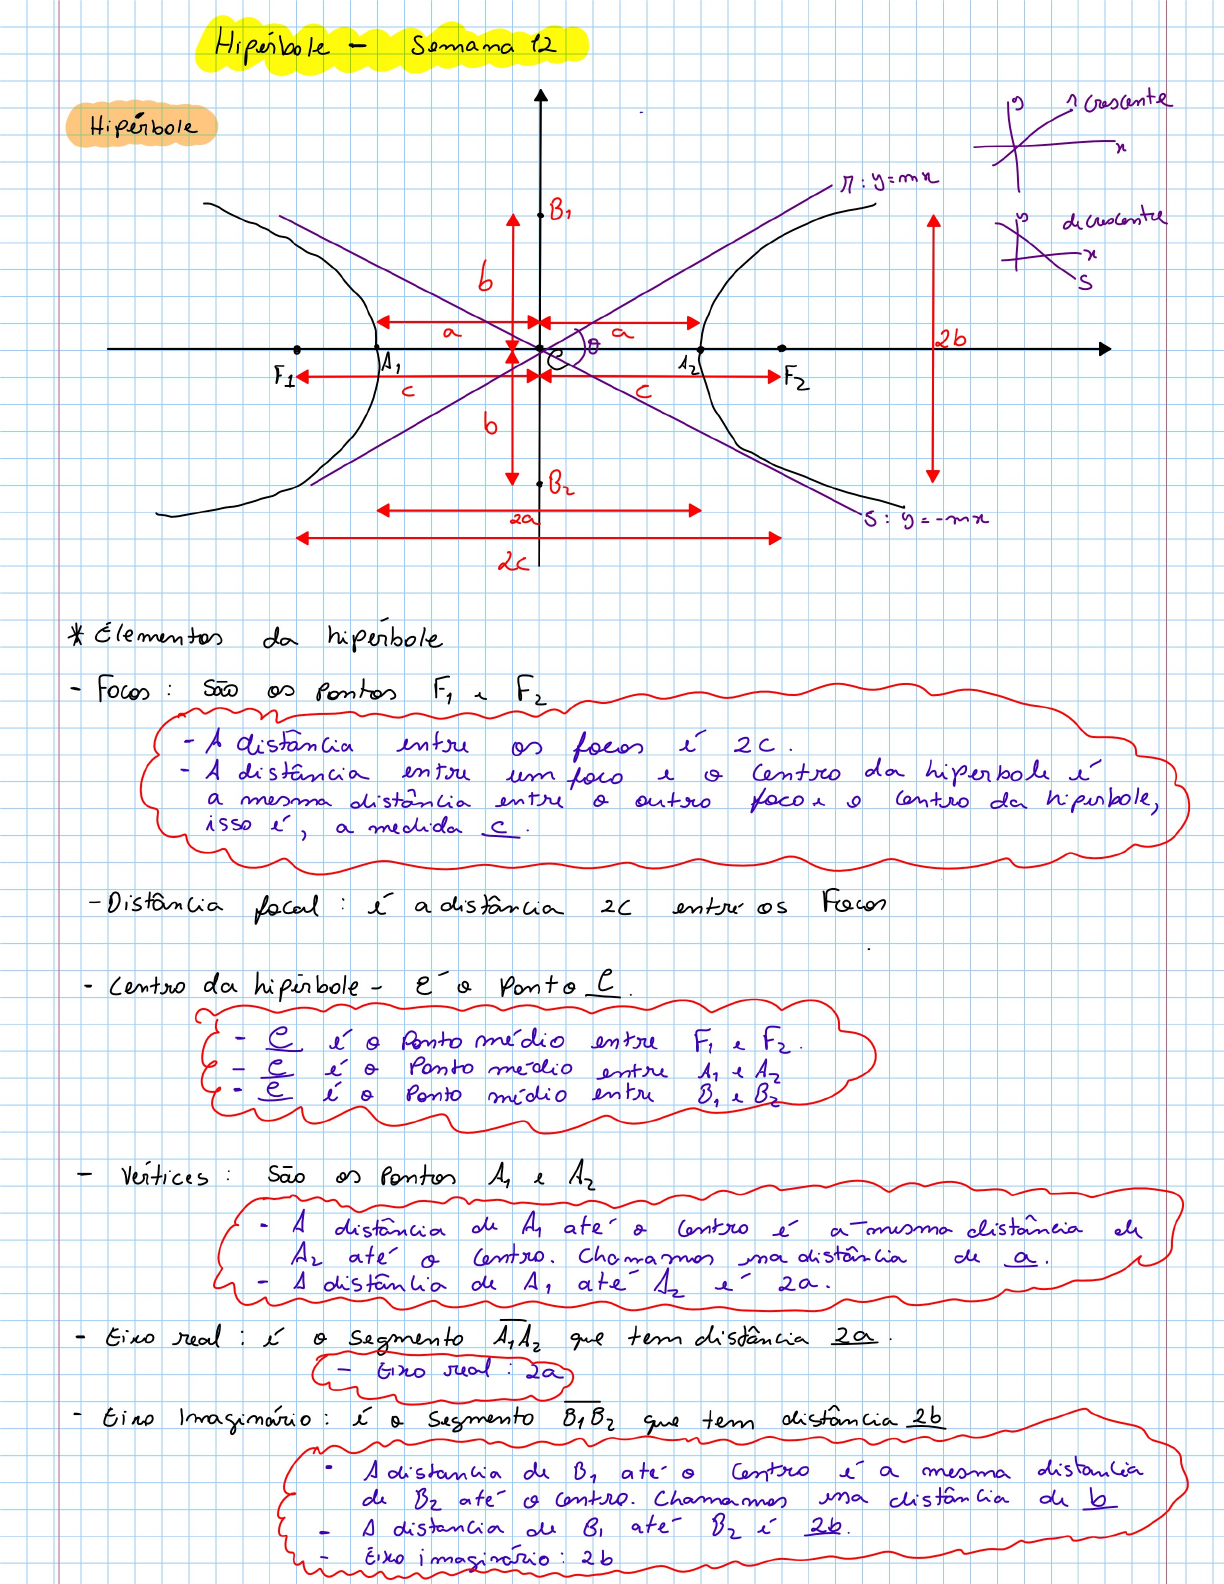 Hipérbole - Semana 12
Hipérbole
y r crescente
x
r: y=mx
y decrescente
x
s
B₁
b
a a θ
2b
F₁ A₁ C A₂ F₂
c c
b
B₂
2a
s: y=-mx
2c
* Elementos da hipérbole
- Focos: São os pontos F₁ e F₂
- A distância entre os focos é 2c.
- A distância entre um foco e o centro da hiperbole é
a mesma distância entre o outro foco e o centro da hiperbole,
isso é, a medida c.
- Distância focal: é a distância 2c entre os Focos
- Centro da hipérbole - É o ponto C.
- C é o ponto médio entre F₁ e F₂.
- C é o ponto médio entre A₁ e A₂
- C é o ponto médio entre B₁ e B₂
- Vértices: São os pontos A₁ e A₂
- A distância de A₁ até o centro é a mesma distância de
A₂ até o centro. Chamamos essa distância de a.
- A distância de A₁ até A₂ é 2a.
- Eixo real: é o segmento A₁A₂ que tem distância 2a.
- Eixo real: 2a
- Eixo Imaginário: é o segmento B₁B₂ que tem distância 2b
- A distancia de B₁ até o centro é a mesma distancia
de B₂ até o centro. Chamamos essa distância de b
- A distancia de B₁ até B₂ é 2b.
- Eixo imaginário: 2b